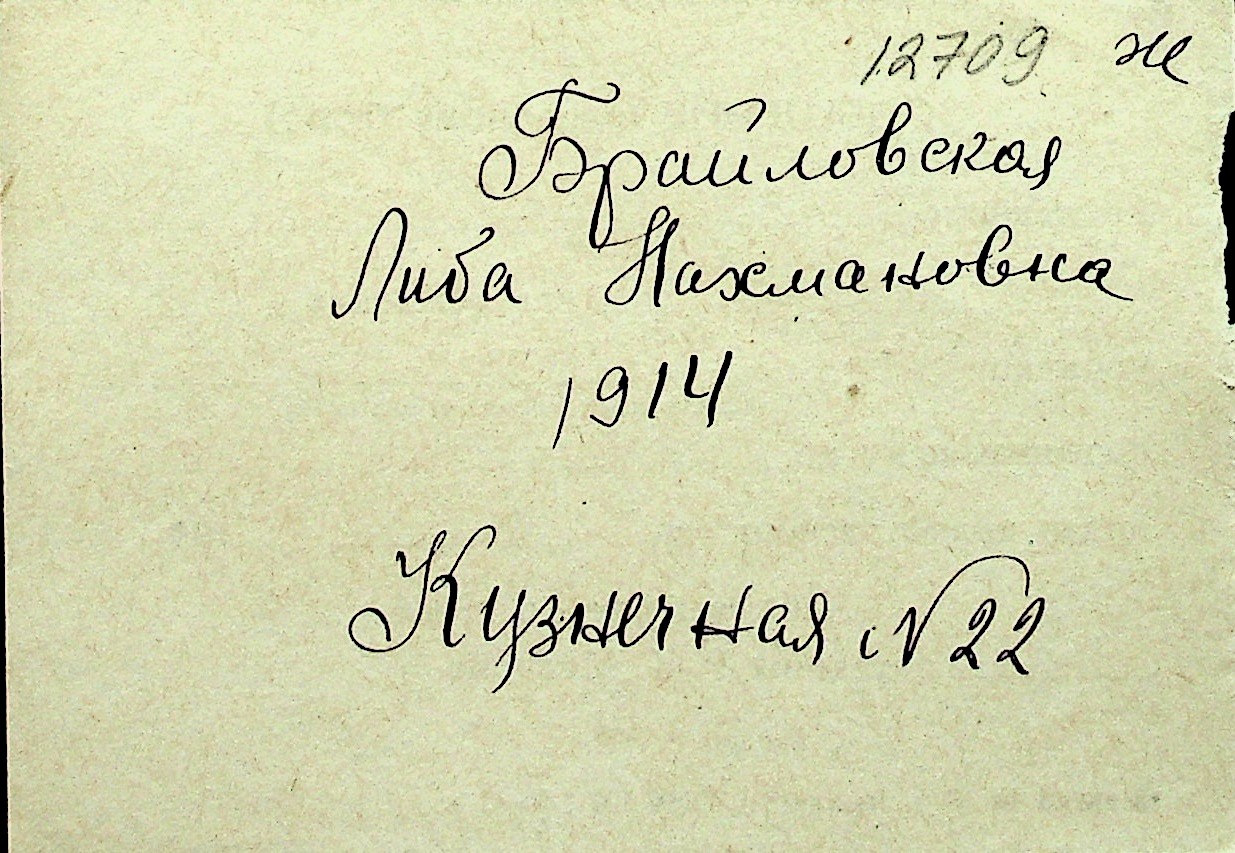 12709 ж
Брайловская
Либа Нахмановна
1914
Кузнечная №22